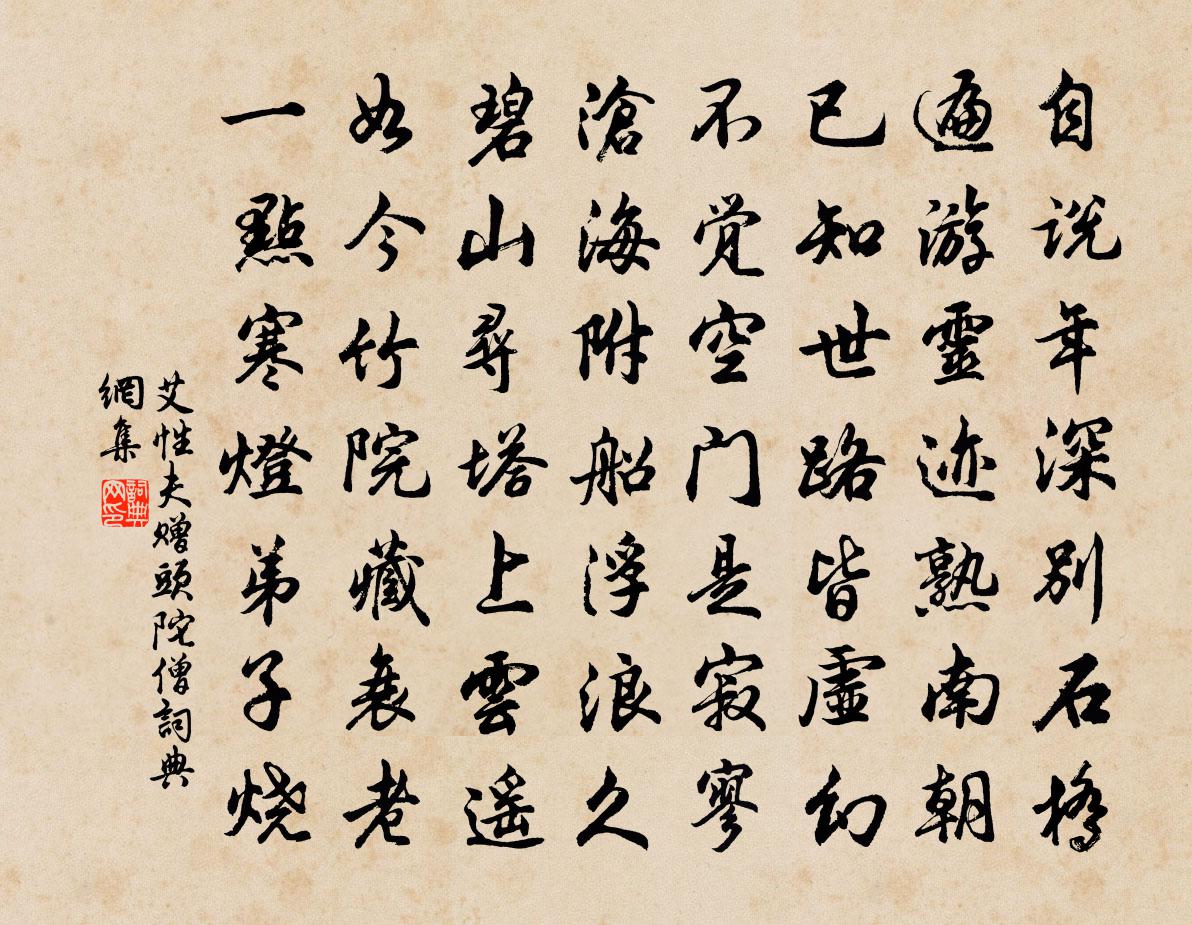 自说年深别石桥
遍游靈迹熟南朝
已知世路皆虛幻
不觉空门是寂寥
滄海附船浮浪久
碧山尋塔上雲遥
如今竹院藏衰老
一點寒燈弟子烧
艾性夫赠頭陀僧詞典
網集
詞典网印